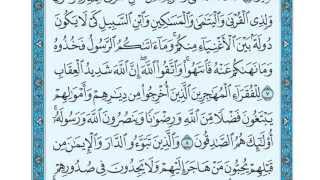 وَلِذِى ٱلْقُرْبَىٰ وَٱلْيَتَـٰمَىٰ وَٱلْمَسَـٰكِينِ وَٱبْنِ ٱلسَّبِيلِ كَىْ لَا يَكُونَ
دُولَةًۢ بَيْنَ ٱلْأَغْنِيَآءِ مِنكُمْ ۚ وَمَآ ءَاتَىٰكُمُ ٱلرَّسُولُ فَخُذُوهُ
وَمَا نَهَىٰكُمْ عَنْهُ فَٱنتَهُوا۟ ۚ وَٱتَّقُوا۟ ٱللَّهَ ۖ إِنَّ ٱللَّهَ شَدِيدُ ٱلْعِقَابِ
٧ لِلْفُقَرَآءِ ٱلْمُهَـٰجِرِينَ ٱلَّذِينَ أُخْرِجُوا۟ مِن دِيَـٰرِهِمْ وَأَمْوَٰلِهِمْ
يَبْتَغُونَ فَضْلًا مِّنَ ٱللَّهِ وَرِضْوَٰنًا وَيَنصُرُونَ ٱللَّهَ وَرَسُولَهُۥٓ ۚ
أُو۟لَـٰٓئِكَ هُمُ ٱلصَّـٰدِقُونَ ٨ وَٱلَّذِينَ تَبَوَّءُو ٱلدَّارَ وَٱلْإِيمَـٰنَ مِن
قَبْلِهِمْ يُحِبُّونَ مَنْ هَاجَرَ إِلَيْهِمْ وَلَا يَجِدُونَ فِى صُدُورِهِمْ